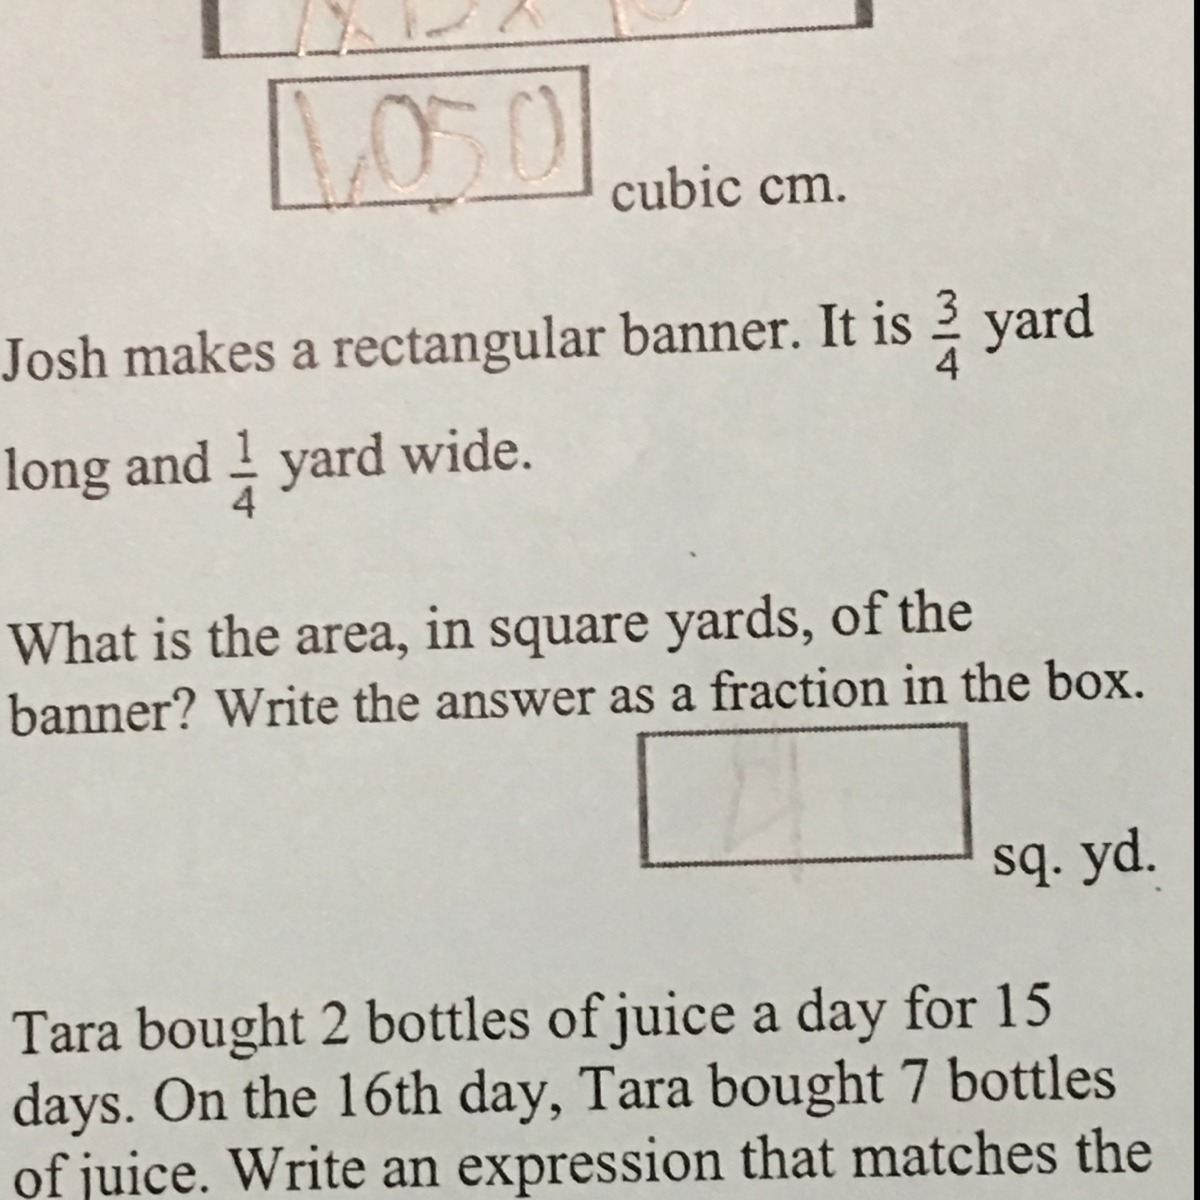 1,050
cubic cm.
Josh makes a rectangular banner. It is 3/4 yard
long and 1/4 yard wide.
What is the area, in square yards, of the
banner? Write the answer as a fraction in the box.
sq. yd.
Tara bought 2 bottles of juice a day for 15
days. On the 16th day, Tara bought 7 bottles
of juice. Write an expression that matches the